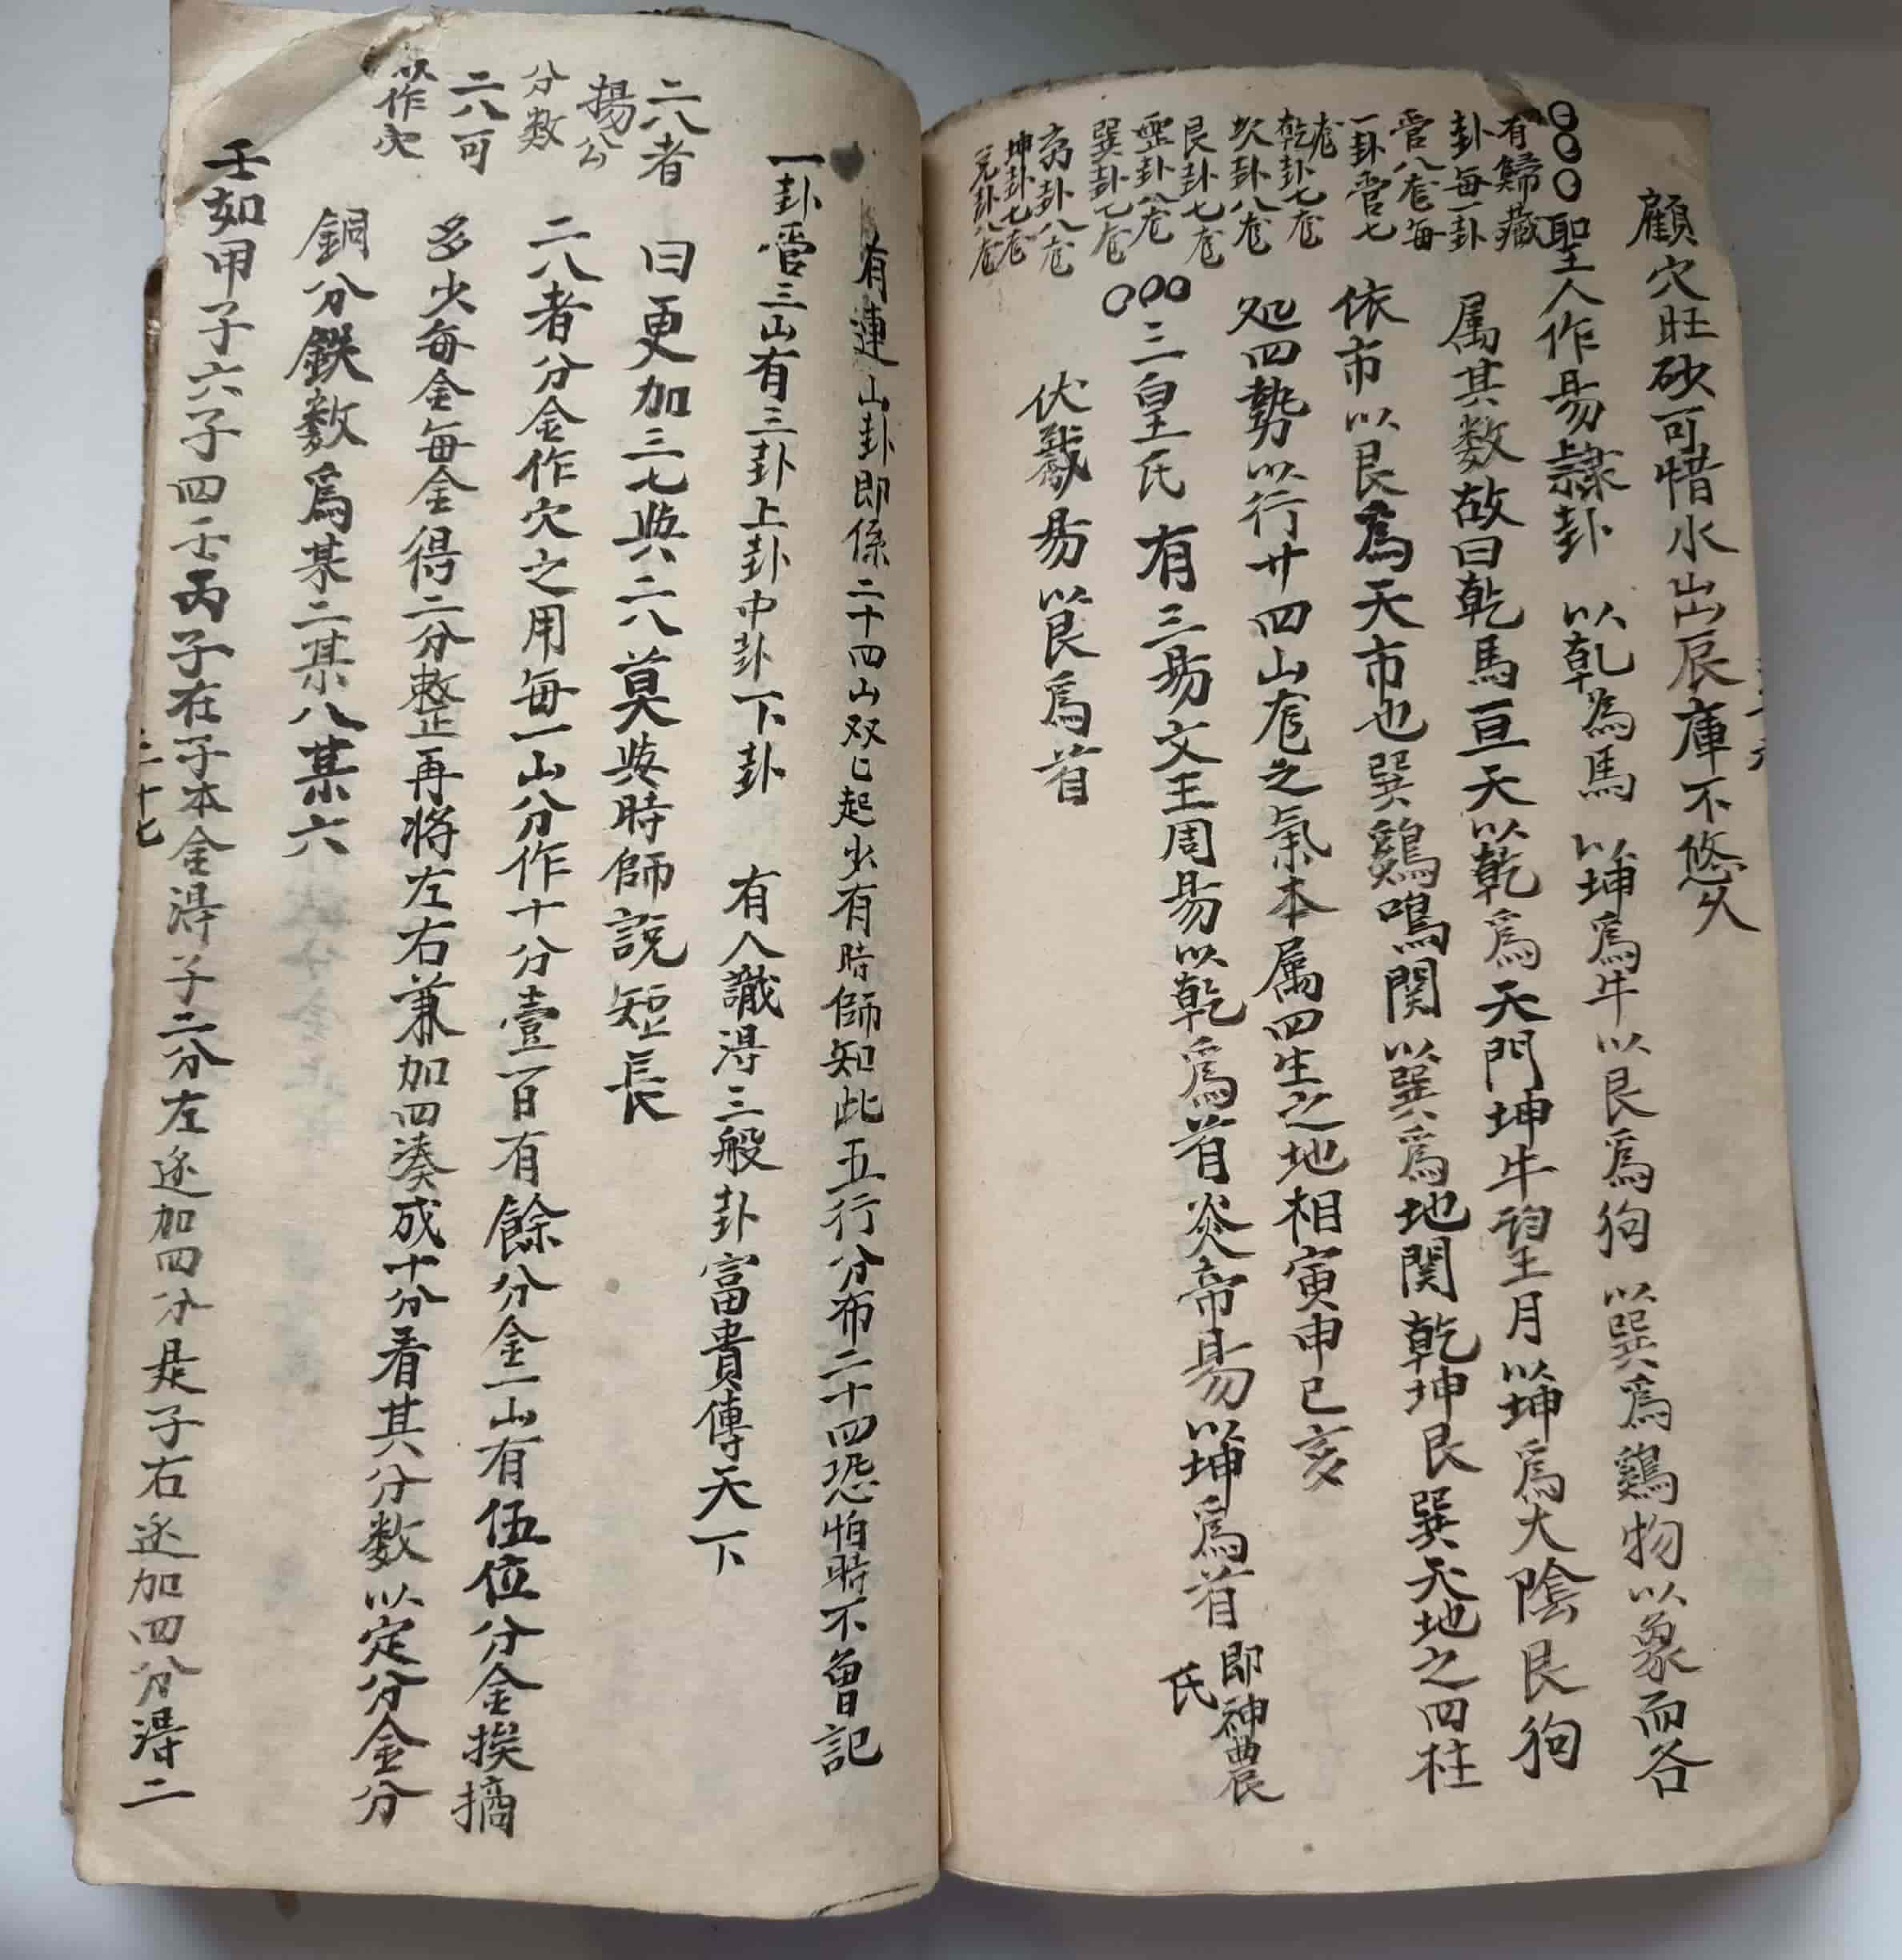 顧穴旺砂可惜水出辰庫不悠久
聖人作易隷卦 以乾為馬 以坤爲牛以艮爲狗 以巽爲鷄物以象而各
属其数故曰乾馬亘天以乾爲天門坤牛望月以坤爲大陰艮狗
依市以艮爲天市也巽鷄鳴関以巽爲地関乾坤艮巽天地之四柱
四勢以行廿四山之氣本属四生之地相寅申巳亥
三皇氏有三易文王周易以乾爲首炎帝易以坤爲首即神農
氏
伏羲易以艮爲首
有歸藏
卦每一卦
管八 每
一卦管七
乾卦七
坎卦八
艮卦七
卦八
巽卦七
卦八
坤卦七
兌卦八
有連山卦即係二十四山双双起 有時師知此五行分布二十四恐怕時不曾記
一卦管三山有三卦上卦中卦下卦 有人識得三般卦富貴傳天下
曰更加三七與二八莫與時師說短長
二八者分金作穴之用每一山分作十分壹百有餘分金一山有伍位分金挨摘
多少每金每金得二分整再將左右兼加四湊成十分看其分数以定分金分
銅分鉄数爲某二某八某六
壬如甲子六子四壬丙子在子本金得子二分左迯加四分是子右迯加四分得二
二八者
揚公
分数
二八可
以作穴
二十七